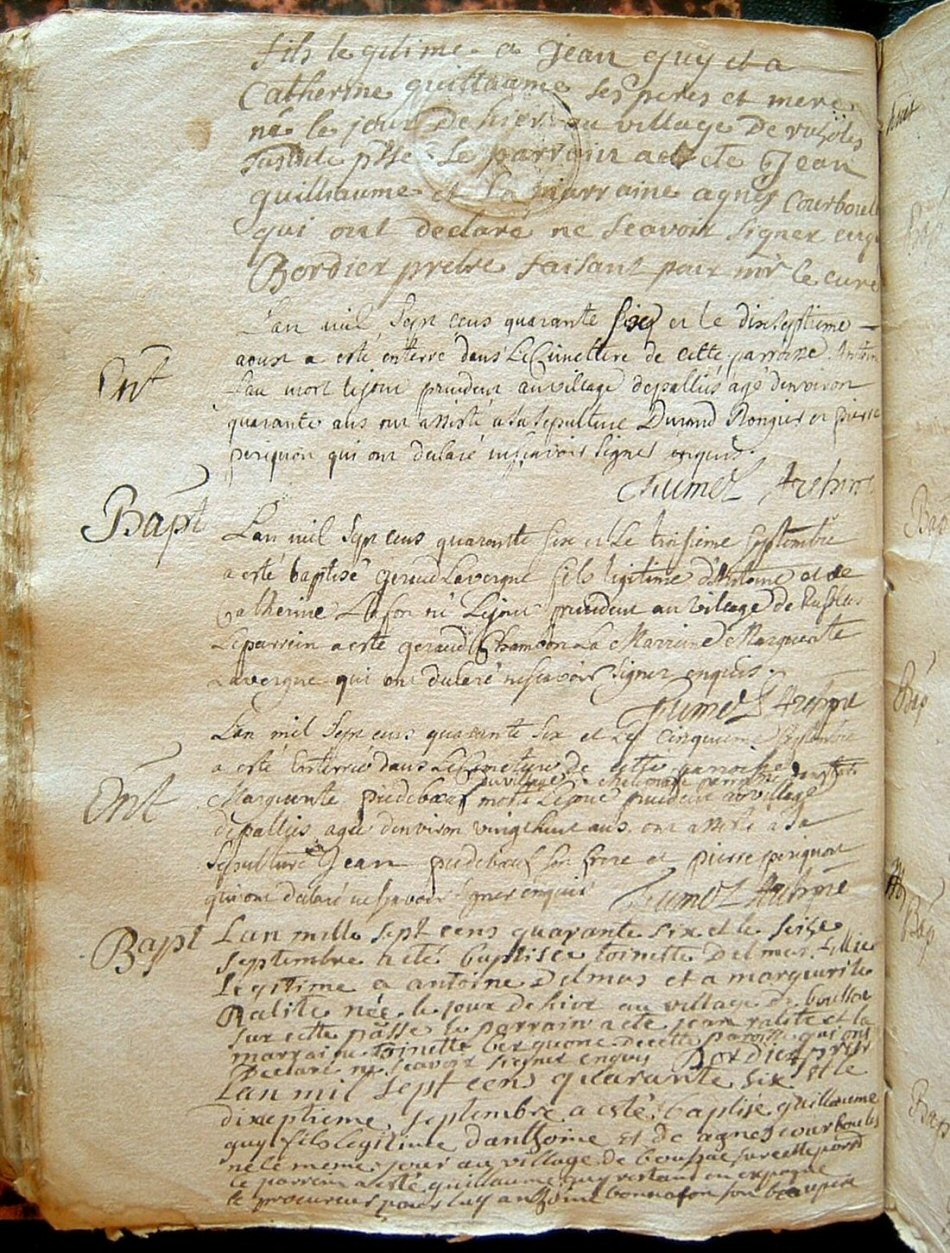 fils legitime a Jean guy et a
Catherine guillaume ses peres et mere
né le jour de hier au village de
sur cette psse Le parrain a esté Jean
guilhaume et la marraine agnes Courboule
qui ont declaré ne scavoir signer enq
Bordier pretre faisant pour mr le curé
Ent
L'an mil sept cens quarante six et le dixseptieme
aoust a esté enterré dans Le Cimetiere de cette parroisse
mort le jour precedent au village depalliés agé d'environ
quarante ans ont assisté a sa sepulture Durand Rongier et pierre
perignon qui ont declaré ne scavoir signer enquis
Bapt
L'an mil sept cens quarante six et Le troisieme septembre
a esté baptisé geraud Lavergne fils legitime d'Antoine et de
Catherine né Lejour precedent au village de
Le parrein a esté geraud Chambon La Marrine Marguerite
Lavergne qui ont declaré ne scavoir signer enquis
L'an mil sept cens quarante six et Le Cinquieme septembre
Ent
a esté Enterrée dans Le Cimetiere de cette parroche
du village
Marguerite piedebœuf morte Lejour precedent au village
depalliés agée d'environ vingt huit ans ont assisté a sa
sepulture Jean piedebœuf son frere et pierre perignon
qui ont declaré ne scavoir signer enquis
Bapt
Lan mille sept cens quarante six et le seize
septembre a eté baptisée toinette Delmas fillie
Legitime a antoine Delmas et a marguerite
Ralite née le jour de hier au village de boussac
sur cette pâsse le parrain a eté jean ralite et la
marraine toinette de cette paroisse qui ont
Declaré ne scavoir signer enquis Bordier pretre
Lan mil sept cens quarante six et le
dixseptieme septembre a esté baptisé guillaume
guy fils legitime d'anthoine et de agnes courboules
né le meme jour au village de boussac sur cette paroisse
le parrain a esté guillaume guy restant en espagne
le procureur pour luy anthoine bonnafon son beaupere